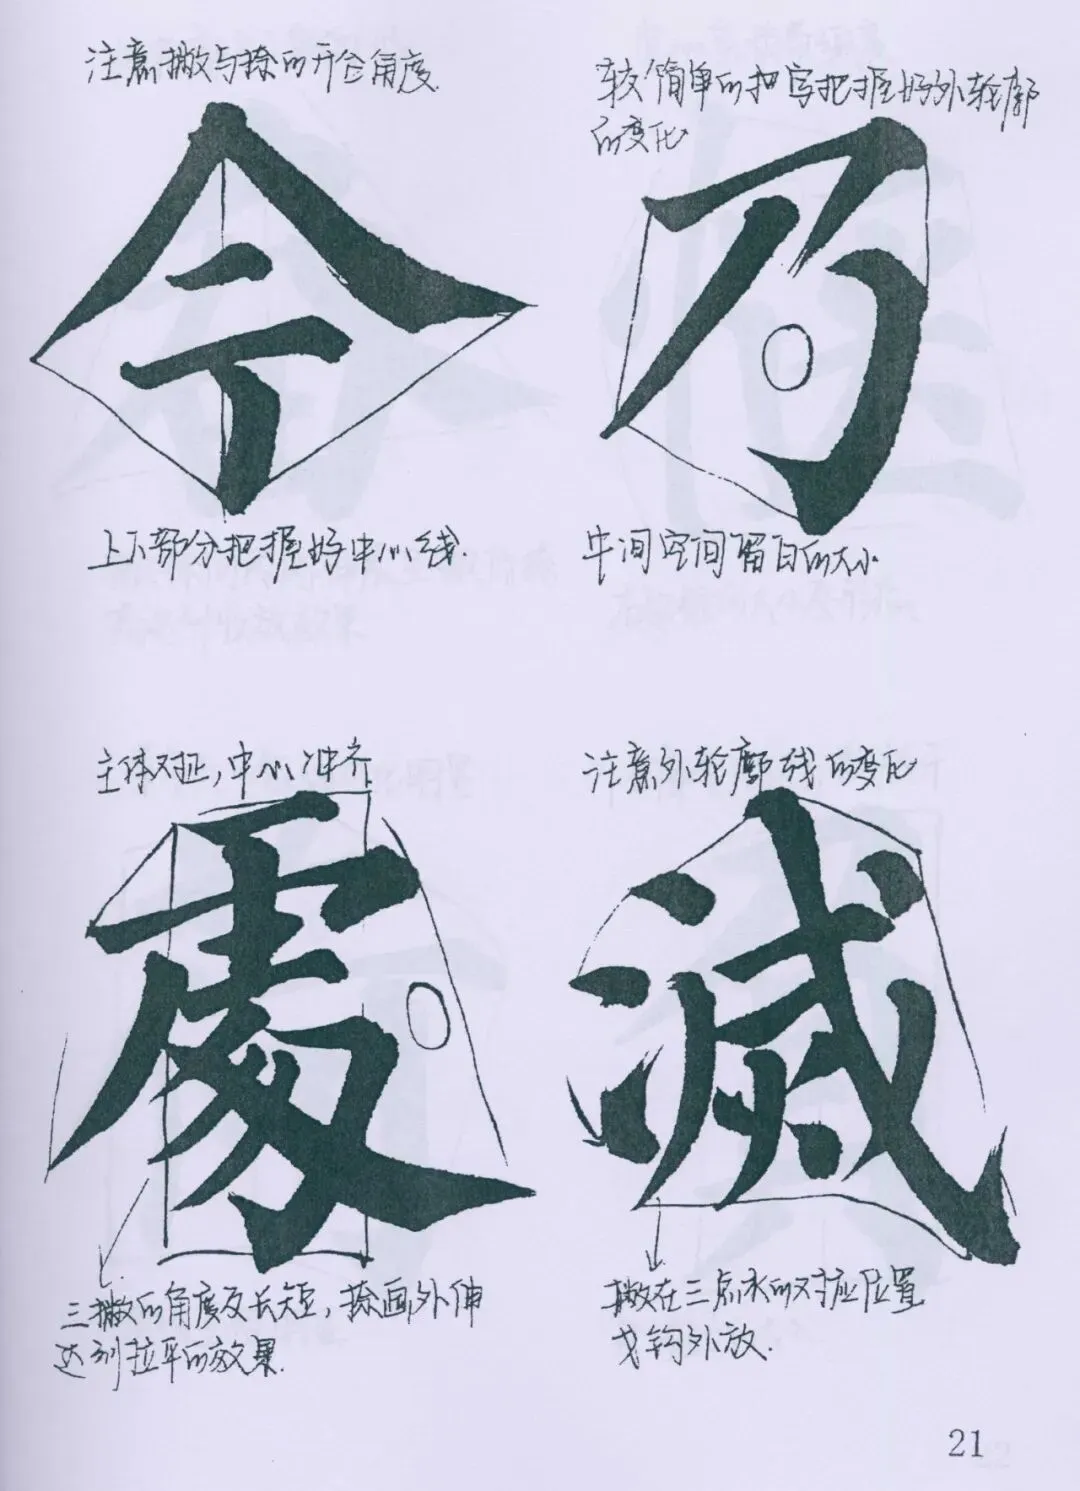 注意撇与捺的开合角度.
令
上下部分把握好中心线.
较简单的把写把握好外轮廓
的变化
乃
中间空间留白的大小
主体对正,中心冲齐
處
三撇的角度及长短,捺画外伸
达到拉平的效果.
注意外轮廓线的变化
滅
撇在三点水的对应位置
戈钩外放.
21